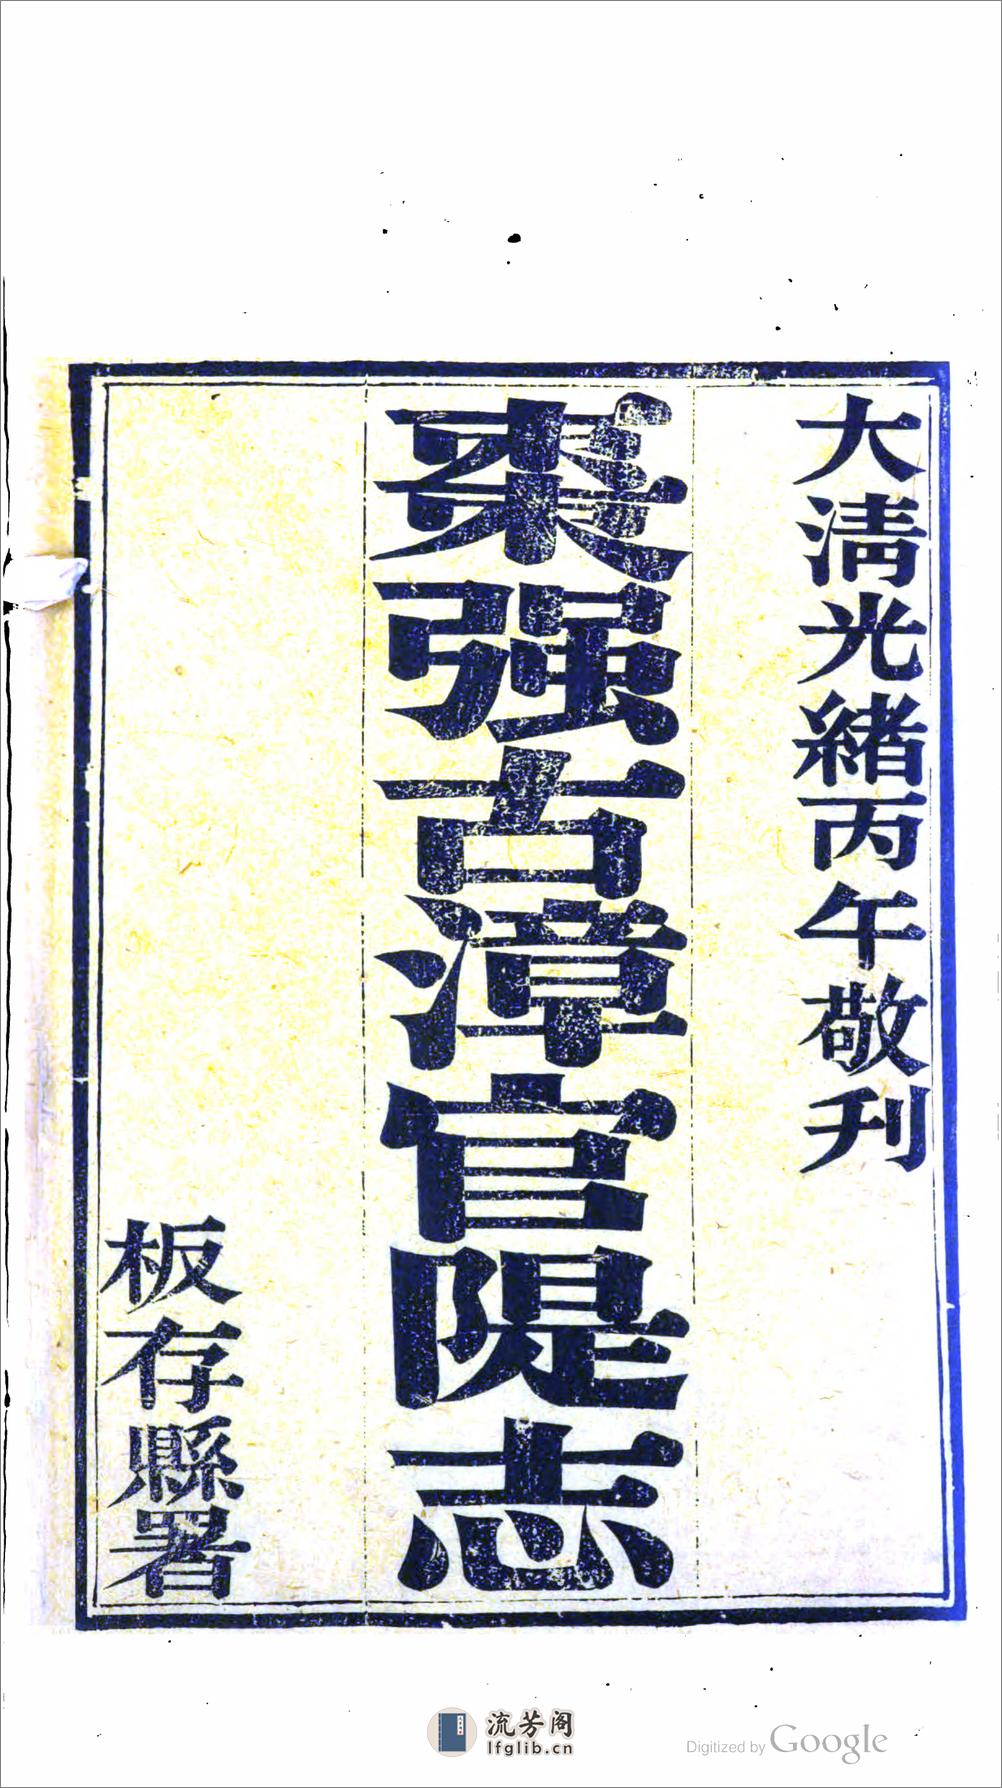 大淸光緒丙午敬刊
棗强古漳官隄志
板存縣署
流芳阁
lfglib.cn
Digitized by Google